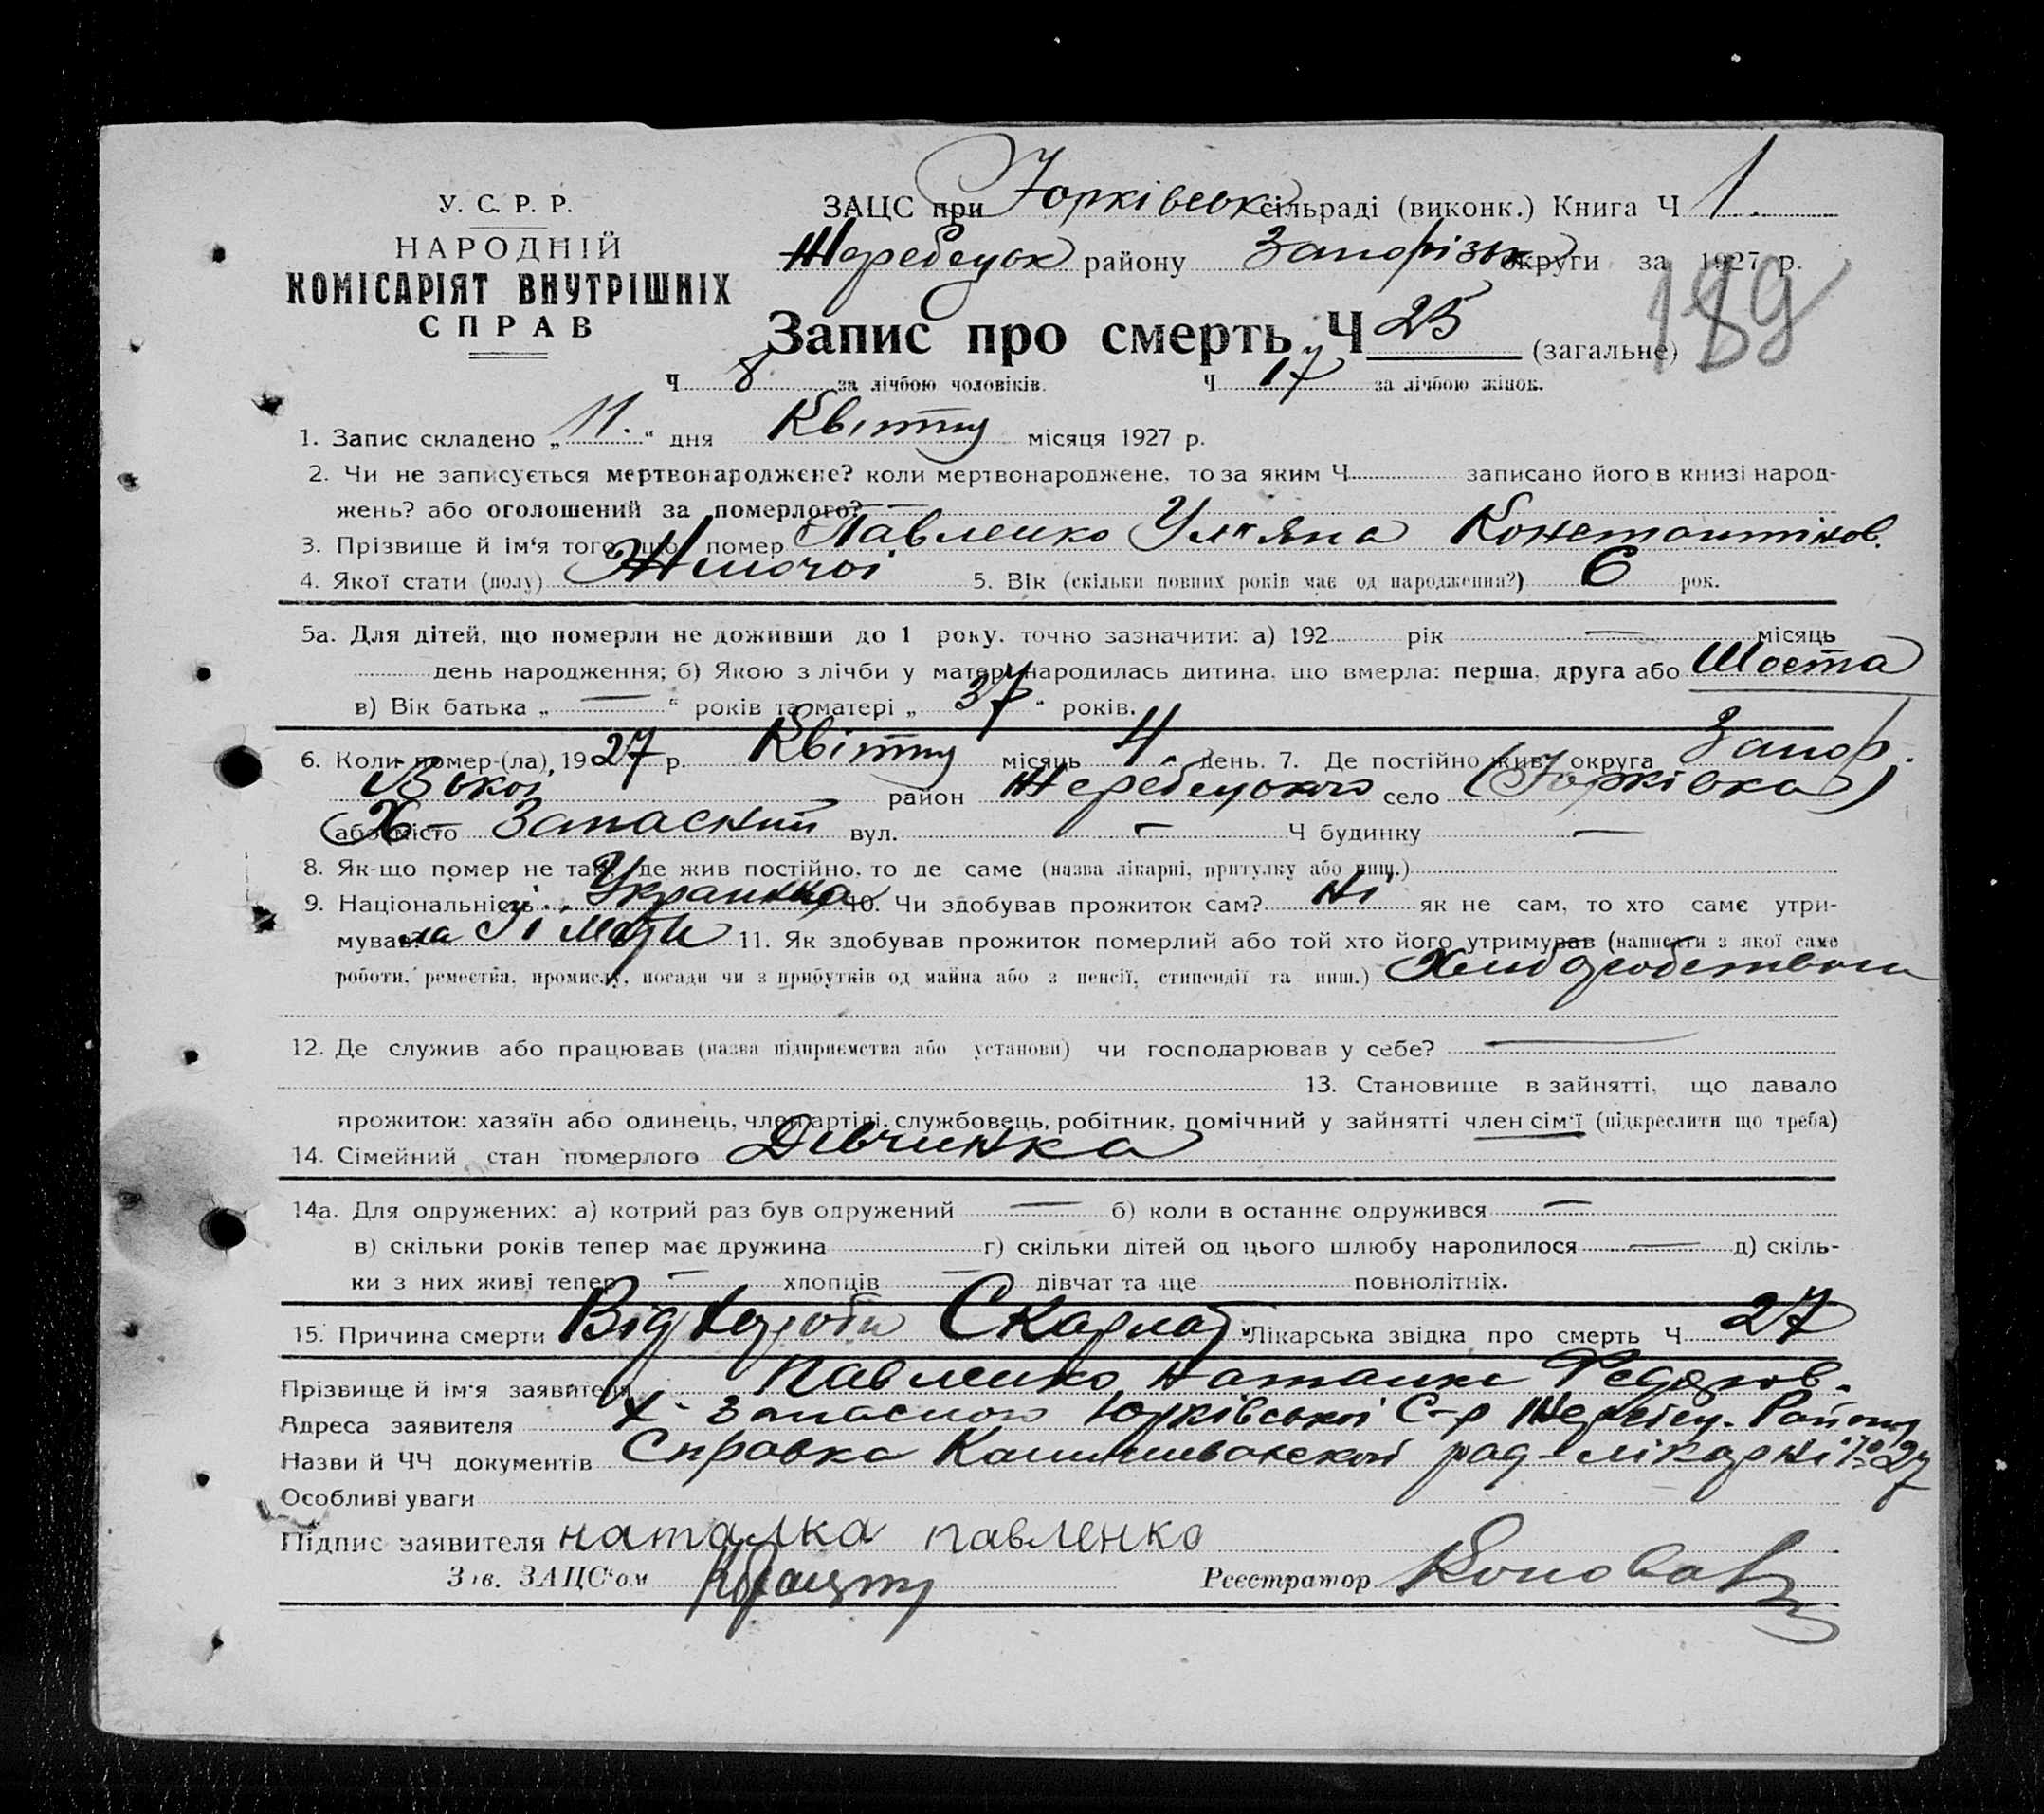 У. С. Р. Р.
НАРОДНІЙ
КОМІСАРІЯТ ВНУТРІШНІХ
СПРАВ
ЗАЦС при Юрківськ сільраді (виконк.) Книга Ч 1.
Жеребецьк району Запорізьк округи за 1927 р.
189
Запис про смерть Ч 25 (загальне)
Ч 8 за лічбою чоловіків. Ч 17 за лічбою жінок.
1. Запис складено „11.“ дня Квітня місяця 1927 р.
2. Чи не записується мертвонароджене? коли мертвонароджене, то за яким Ч записано його в книзі народ-
жень? або оголошений за померлого? —
3. Прізвище й ім'я того, що помер Павленко Ул"яна Константінов.
4. Якої стати (полу) Жіночоі 5. Вік (скільки повних років має од народження?) 6 рок.
5а. Для дітей, що померли не доживши до 1 року, точно зазначити: а) 192 рік — місяць
день народження; б) Якою з лічби у матері народилась дитина, що вмерла: перша, друга або Шоста
в) Вік батька „ — “ років та матері „ 37 “ років.
6. Коли помер-(ла), 1927 р. Квітня місяць 4 день. 7. Де постійно жив? округа Запор.
Зькоі район Жеребецького село (Юрківка)
(або місто Х– Запасний вул. — Ч будинку —
8. Як-що помер не там, де жив постійно, то де саме (назва лікарні, притулку або инш.)
9. Національність Украинка 10. Чи здобував прожиток сам? Ні як не сам, то хто саме утри-
мувала Її Мати 11. Як здобував прожиток померлий або той хто його утримував (написати з якої саме
роботи, ремества, промислу, посади чи з прибутків од майна або з пенсії, стипендії та инш.) Хлиборобством
12. Де служив або працював (назва підприємства або установи) чи господарював у себе? —
13. Становище в зайнятті, що давало
прожиток: хазяїн або одинець, член артілі, службовець, робітник, помічний у зайнятті член сім'ї (підкреслити що треба)
14. Сімейний стан померлого Дівчинка
14а. Для одружених: а) котрий раз був одружений — б) коли в останнє одружився —
в) скільки років тепер має дружина г) скільки дітей од цього шлюбу народилося — д) скіль-
ки з них живі тепер — хлопців — дівчат та ще повнолітніх.
15. Причина смерти Від Хороби Скарлат. Лікарська звідка про смерть Ч 27
Прізвище й ім'я заявителя Павленко Наталка Федоров.
Адреса заявителя х- Запасного Юрківськоі С-р Жеребец. Району
Назви й ЧЧ документів Справка рад-лікарні № 27
Особливі уваги
Підпис заявителя наталка павленко
Зав. ЗАЦС'ом
Реєстратор